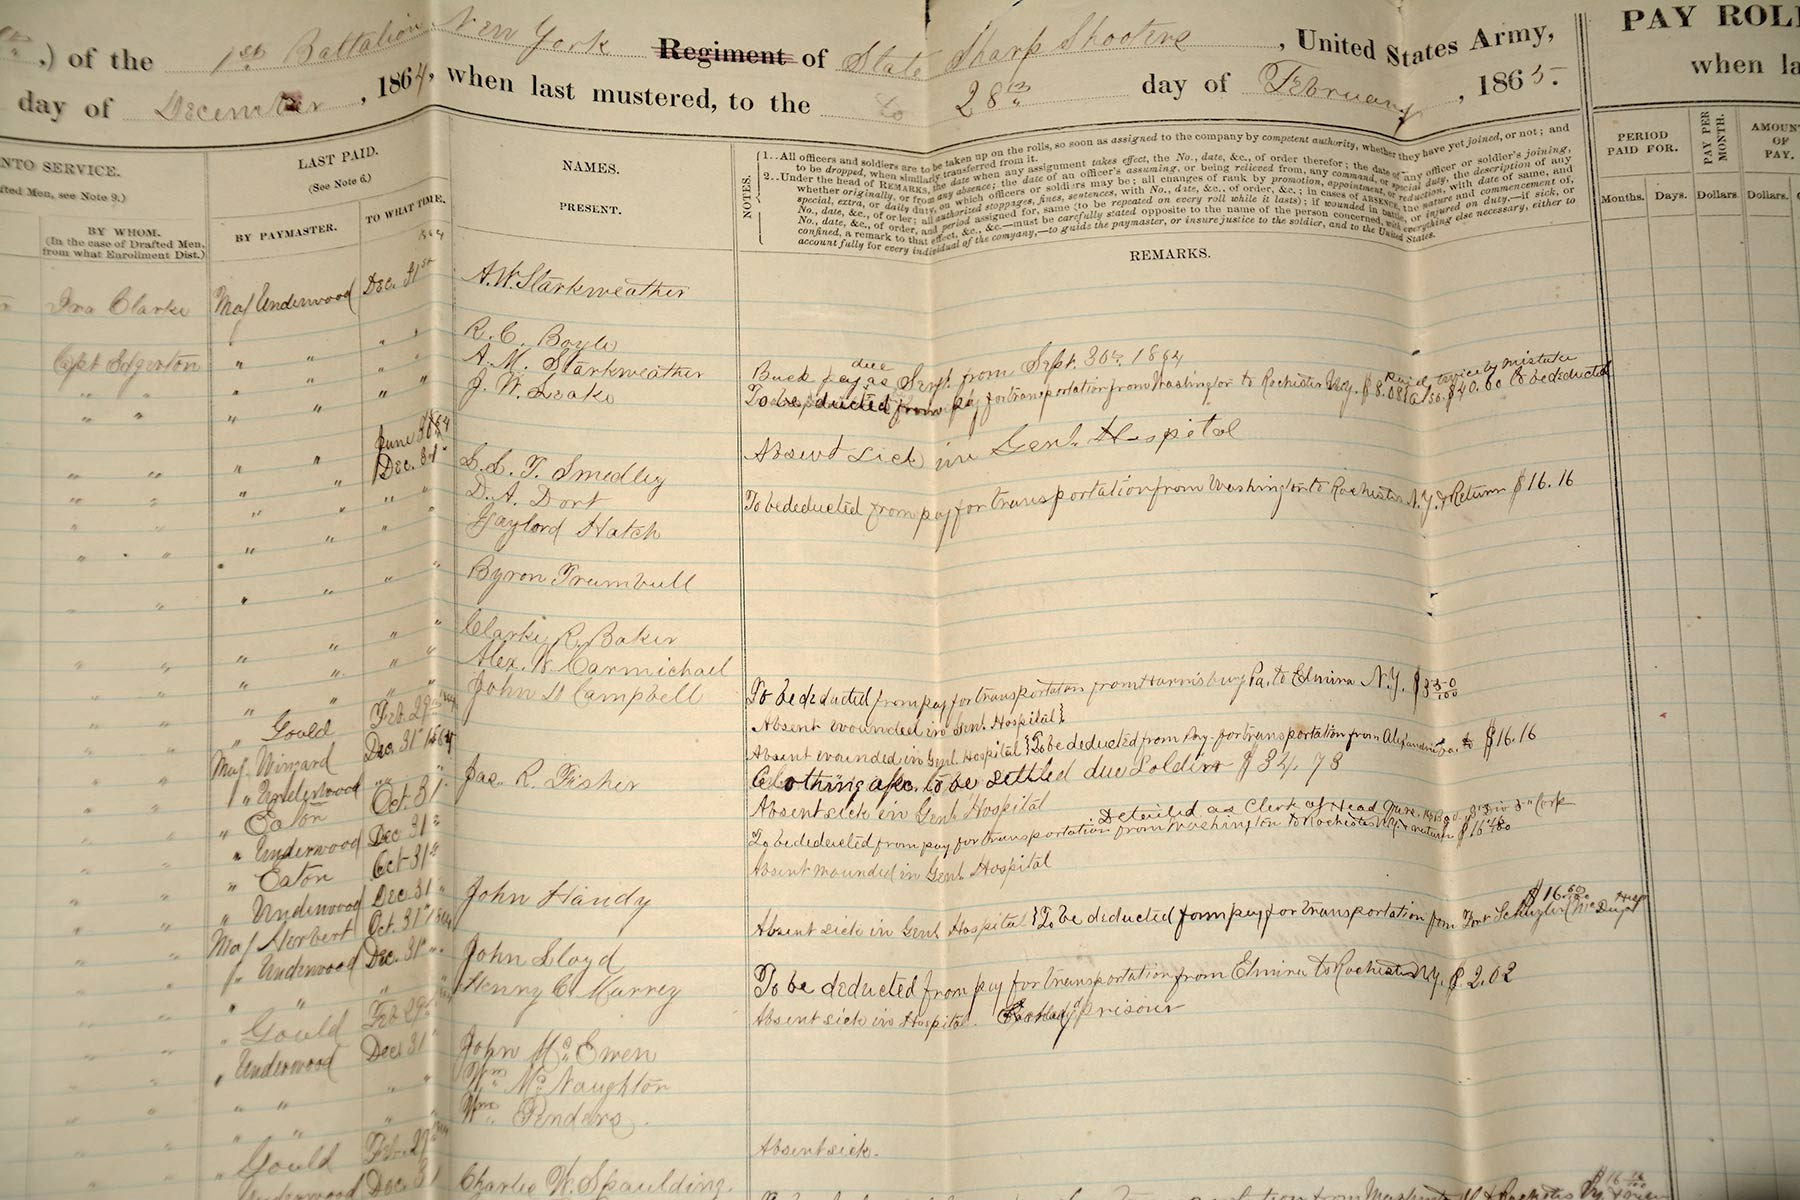 .) of the 1st Battalion New York Regiment of State Sharp Shooters, United States Army,
day of December, 1864, when last mustered, to the 28th day of February, 1865.
PAY ROLL
when la
INTO SERVICE.
fted Men, see Note 9.)
BY WHOM.
(In the case of Drafted Men, from what Enrollment Dist.)
LAST PAID.
(See Note 6.)
BY PAYMASTER.
TO WHAT TIME.
NAMES.
PRESENT.
NOTES.
1..All officers and soldiers are to be taken up on the rolls, so soon as assigned to the company by competent authority, whether they have yet joined, or not; and
to be dropped, when similarly transferred from it.
2..Under the head of REMARKS, the date when any assignment takes effect, the No., date, &c., of order therefor; the date of any officer or soldier's joining,
whether originally, or from any absence; the date of an officer's assuming, or being relieved from, any command, or special duty, the description of any
special, extra, or daily duty, on which officers or soldiers may be; all changes of rank by promotion, appointment, or reduction, with date of same, and
No., date, &c., of order; all authorized stoppages, fines, sentences, with No., date, &c., of order, &c.; in cases of ABSENCE, the nature and commencement of,
No., date, &c., of order, and period assigned for, same (to be repeated on every roll while it lasts); if wounded in battle, or injured on duty,—if sick, or
confined, a remark to that effect, &c., &c.—must be carefully stated opposite to the name of the person concerned, with everything else necessary, either to
account fully for every individual of the company,—to guide the paymaster, or insure justice to the soldier, and to the United States.
REMARKS.
PERIOD PAID FOR.
PAY PER MONTH.
AMOUNT OF PAY.
Months. Days. Dollars. Dollars.
1864
Ira Clarke Maj Underwood Dec. 31st A. W. Starkweather
Capt Edgerton " " " R. C. Boyle
" " " " " A. M. Starkweather Back pay due as Sergt. from Sept. 30th 1864
" " " " " J. W. Leake To be deducted from pay for transportation from Washington to Rochester N.Y. $8.08 Also $40.60 to be deducted
Paid twice by mistake
June 30 1864 Absent Sick in Genl. Hospital
" " " " Dec. 31st L. L. T. Smedley
" " " " " " D. A. Dort To be deducted from pay for transportation from Washington to Rochester N.Y. & Return $16.16
" " " " " " Gaylord Hatch
" " " " " " Byron Trumbull
" " " " " " Clarke R. Baker
" " " " " " Alex. W. Carmichael
" " " " " " John D Campbell To be deducted from pay for transportation from Harrisburg Pa. to Elmira N.Y. $3 50/100
" Gould Feb. 29th 1864 Absent wounded in Genl. Hospital
Maj. Winard Dec. 31st 1864 Absent wounded in Genl. Hospital } To be deducted from Pay for transportation from Alexandria to $16.16
" Underwood " " Jas. R. Fisher Clothing a/c. to be settled due Soldier $34.73
" Eaton Oct 31 Absent sick in Genl. Hospital
" Underwood Dec 31st To be deducted from pay for transportation from Washington to Rochester N.Y. & return
Detailed as Clerk at Head Qurs.
" Eaton Oct 31st Absent wounded in Genl. Hospital
" Underwood Dec. 31 John Handy
Maj Herbert Oct. 31st 1864 Absent sick in Genl. Hospital } To be deducted from pay for transportation from Fort Schuyler
" Underwood Dec. 31st John Lloyd
" " " Henry C. Murrey To be deducted from pay for transportation from Elmira to Rochester N.Y. $2.02
" Gould Feb 29th Absent sick in Hospital. prisoner
" Underwood Dec 31 John Mc Ewen
" " " " Wm. Mc Naughton
" " " " Wm. Penders.
" Gould Feb. 29th Absent sick.
Underwood Dec 31 Charles W. Spaulding